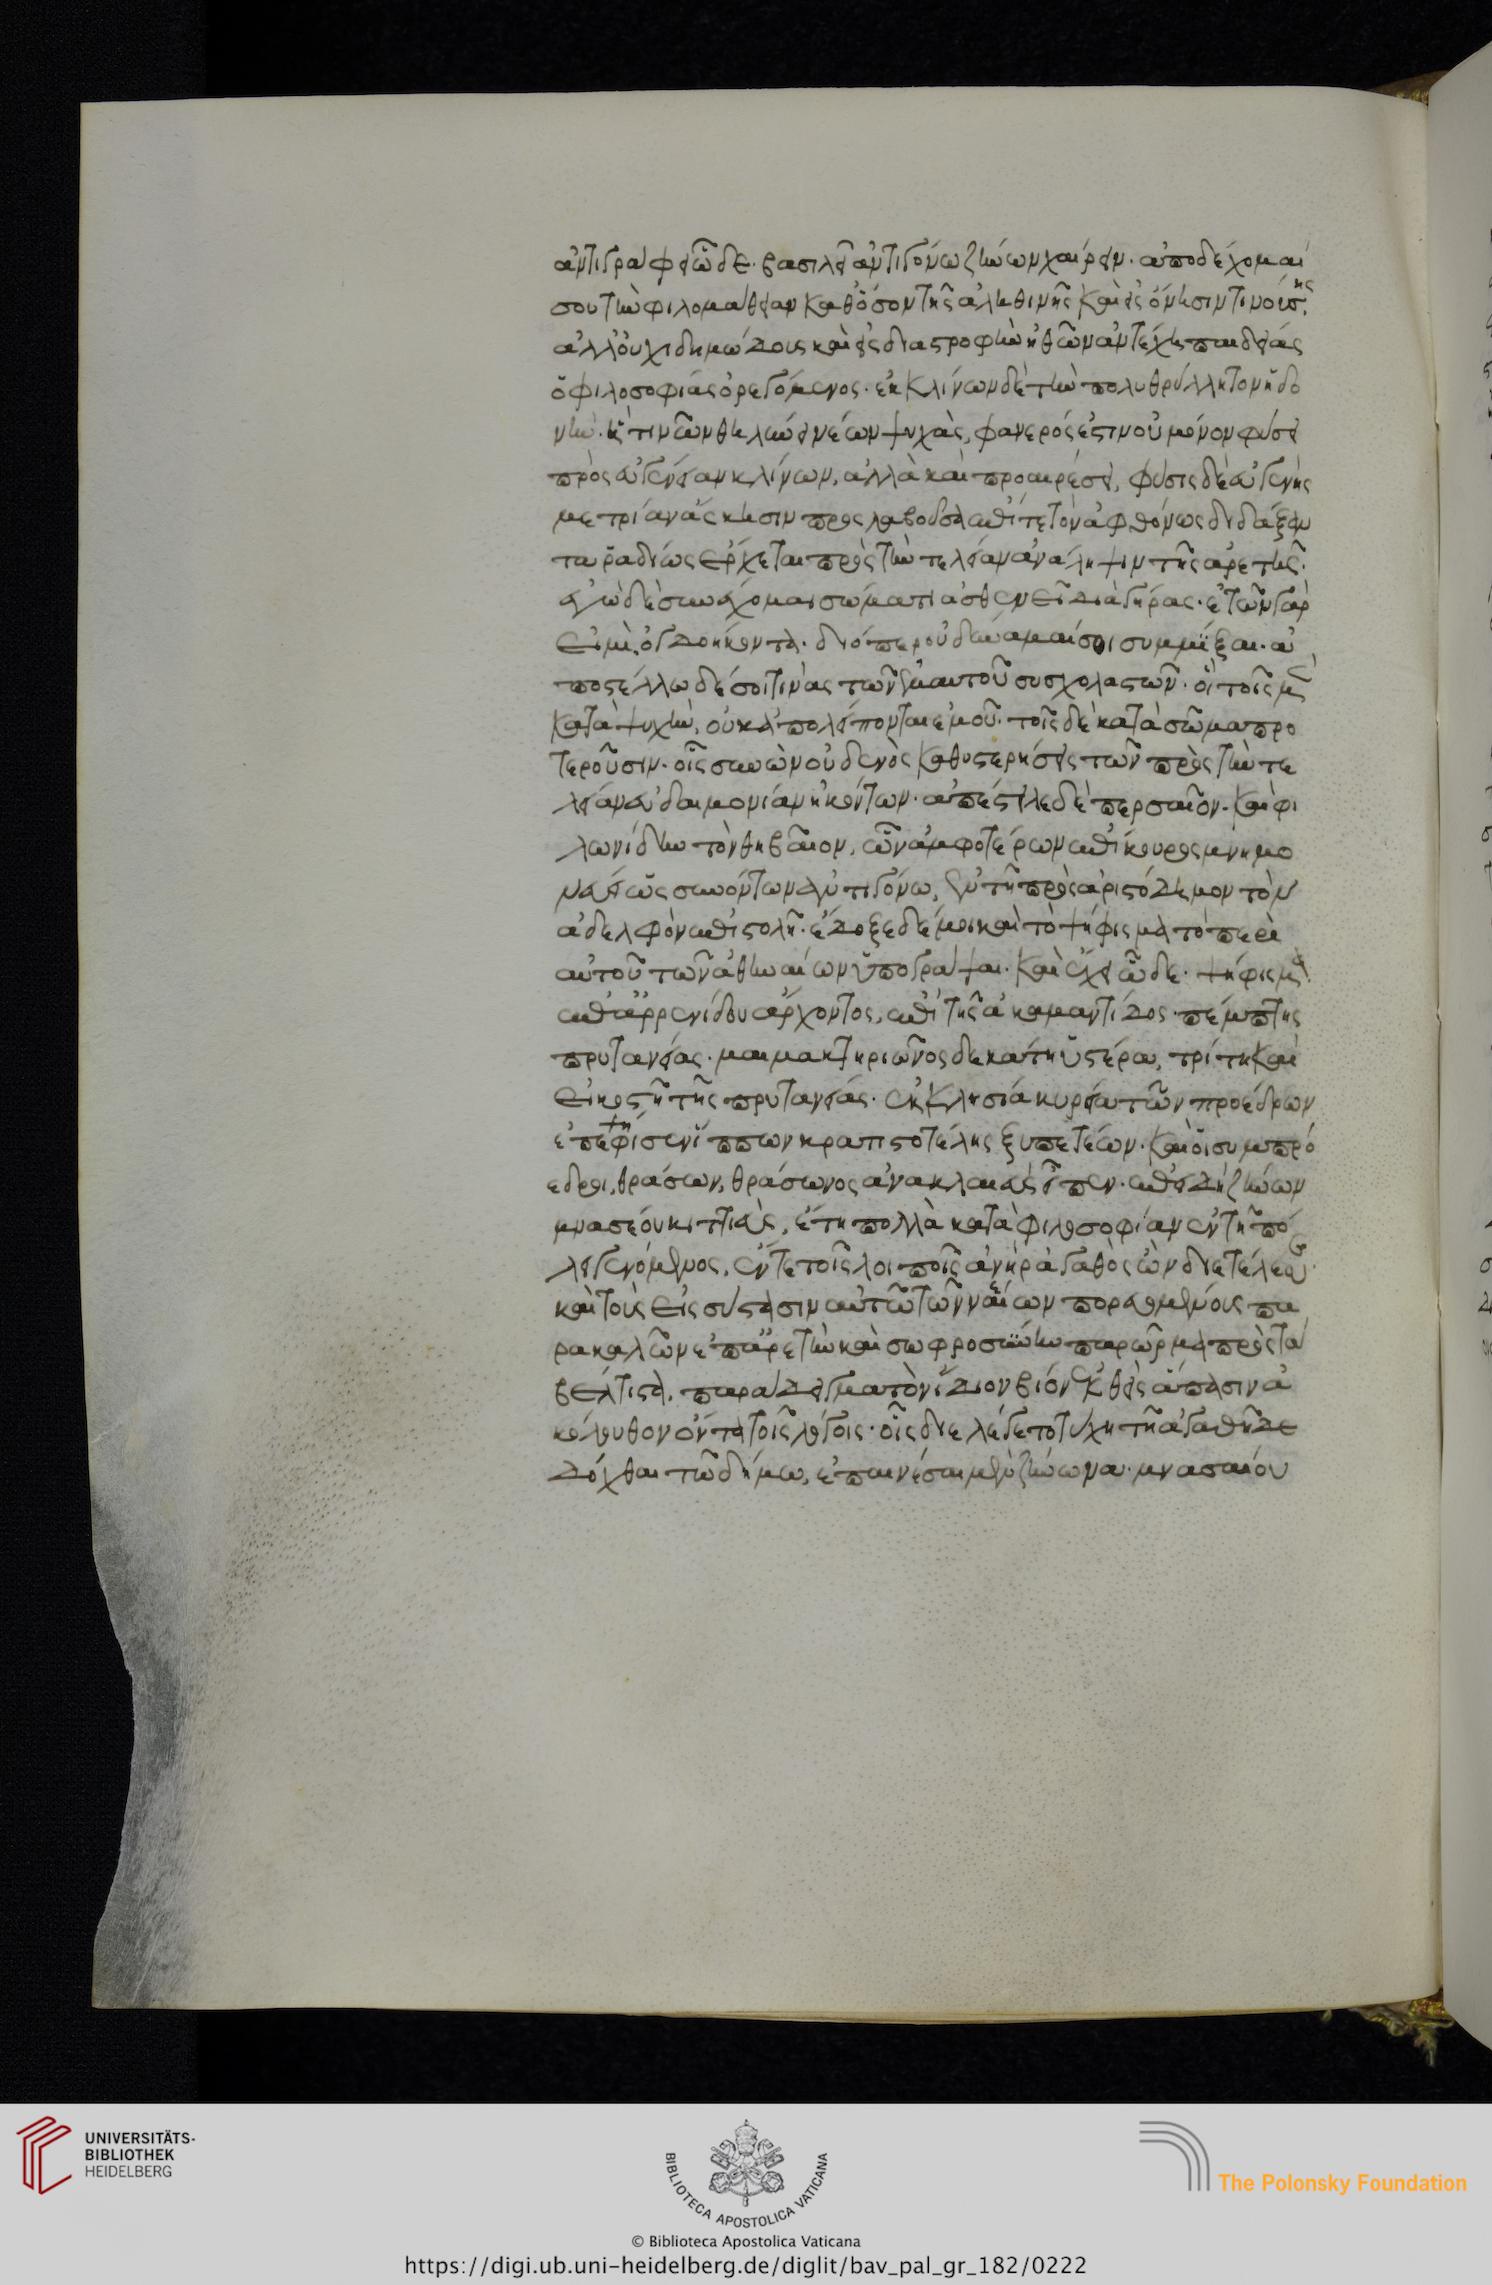 ἀντιγράφει ὧδε· βασιλεῖ ἀντιγόνω ζήνων χαίρειν· ἀποδέχομαί
σου τὴν φιλομάθειαν καθόσον τῆς ἀληθινῆς καὶ εἰς ὄνησιν τινούσης·
ἀλλ' οὐχὶ δημώδους καὶ εἰς διαστροφὴν ἠθῶν ἀντέχη παιδείας
ὁ φιλοσοφίας ὀρεγόμενος· ἐκκλίνων δὲ τὴν πολυθρύλλητον ἡδο
νὴν· ἥ τινῶν θηλύνει νέων ψυχὰς, φανερός ἐστιν οὐ μόνον φύσει
πρὸς εὐγένειαν κλίνων, ἀλλὰ καὶ προαιρέσει, φύσις δὲ εὐγενὴς
μετρίαν ἄσκησιν προσλαβοῦσα ἐπί τε τὸν ἀφθόνως διδάξον
τα ῥαδίως ἔρχεται πρὸς τὴν τελείαν ἀνάληψιν τῆς ἀρετῆς·
ἐγὼ δὲ συνέχομαι σώματι ἀσθενεῖ διὰ γήρας· ἐτῶν γὰρ
εἰμὶ ὀγδοήκοντα· διόπερ οὐ δύναμαί σοι συμμῖξαι· ἀ
ποστέλλω δέ σοι τινὰς τῶν ἐμαυτοῦ συσχολαστῶν· οἳ τοῖς μὲν
κατὰ ψυχὴν, οὐκ ἀπολείπονται ἐμοῦ· τοῖς δὲ κατὰ σῶμα προ
τεροῦσιν· οἷς συνὼν οὐδενὸς καθυστερήσεις τῶν πρὸς τὴν τε
λείαν εὐδαιμονίαν ἡκόντων· ἀπέστειλε δὲ περσαῖον· καὶ φι
λωνίδην τὸν θηβαῖον, ὧν ἀμφοτέρων ἐπίκουρος μνημο
νεύει ὡς συνόντων ἀντιγόνω, ἐν τῆ πρὸς ἀριστόδημον τὸν
ἀδελφὸν ἐπιστολῆ· ἔδοξε δέ μοι καὶ τὸ ψήφισμα τὸ περὶ
αὐτοῦ τῶν ἀθηναίων ὑπογράψαι· καὶ ἔχει ὧδε· ψήφισμα·
ἐπ' ἀρρενίδου ἄρχοντος, ἐπὶ τῆς ἀκαμαντίδος πέμπτης
πρυτανείας· μαιμακτηριῶνος δεκάτη ὑστέρα, τρίτη καὶ
εἰκοστῆ τῆς πρυτανείας· ἐκκλησία κυρία τῶν προέδρων
ἐπεψήφισεν ἵππων κρατιστοτέλης ξυπετέων· καὶ οἱ συμπρό
εδροι, θράσων, θράσωνος ἀνακλαιεὺς εἶπεν· ἐπειδὴ ζήνων
μνασέου κιττιεὺς, ἔτη πολλὰ κατὰ φιλοσοφίαν ἐν τῆ πό
λει γενόμενος, ἔν τε τοῖς λοιποῖς ἀνὴρ ἀγαθὸς ὢν διετέλεσεν·
καὶ τοὺς εἰς σύστασιν αὐτῶ τῶν νέων πορευομένους πα
ρακαλῶν ἐπ' ἀρετὴν καὶ σωφροσύνην παρώρμα πρὸς τὰ
βέλτιστα, παράδειγμα τὸν ἴδιον βίον ἐκθεὶς ἅπασιν ἀ
κόλουθον ὄντα τοῖς λόγοις· οἷς διελέγετο τύχη τῆ ἀγαθῆ δε
δόχθαι τῶ δήμω, ἐπαινέσαι μὲν ζήνωνα μνασαίου
UNIVERSITÄTS-
BIBLIOTHEK
HEIDELBERG
BIBLIOTECA APOSTOLICA VATICANA
The Polonsky Foundation
© Biblioteca Apostolica Vaticana
https://digi.ub.uni-heidelberg.de/diglit/bav_pal_gr_182/0222